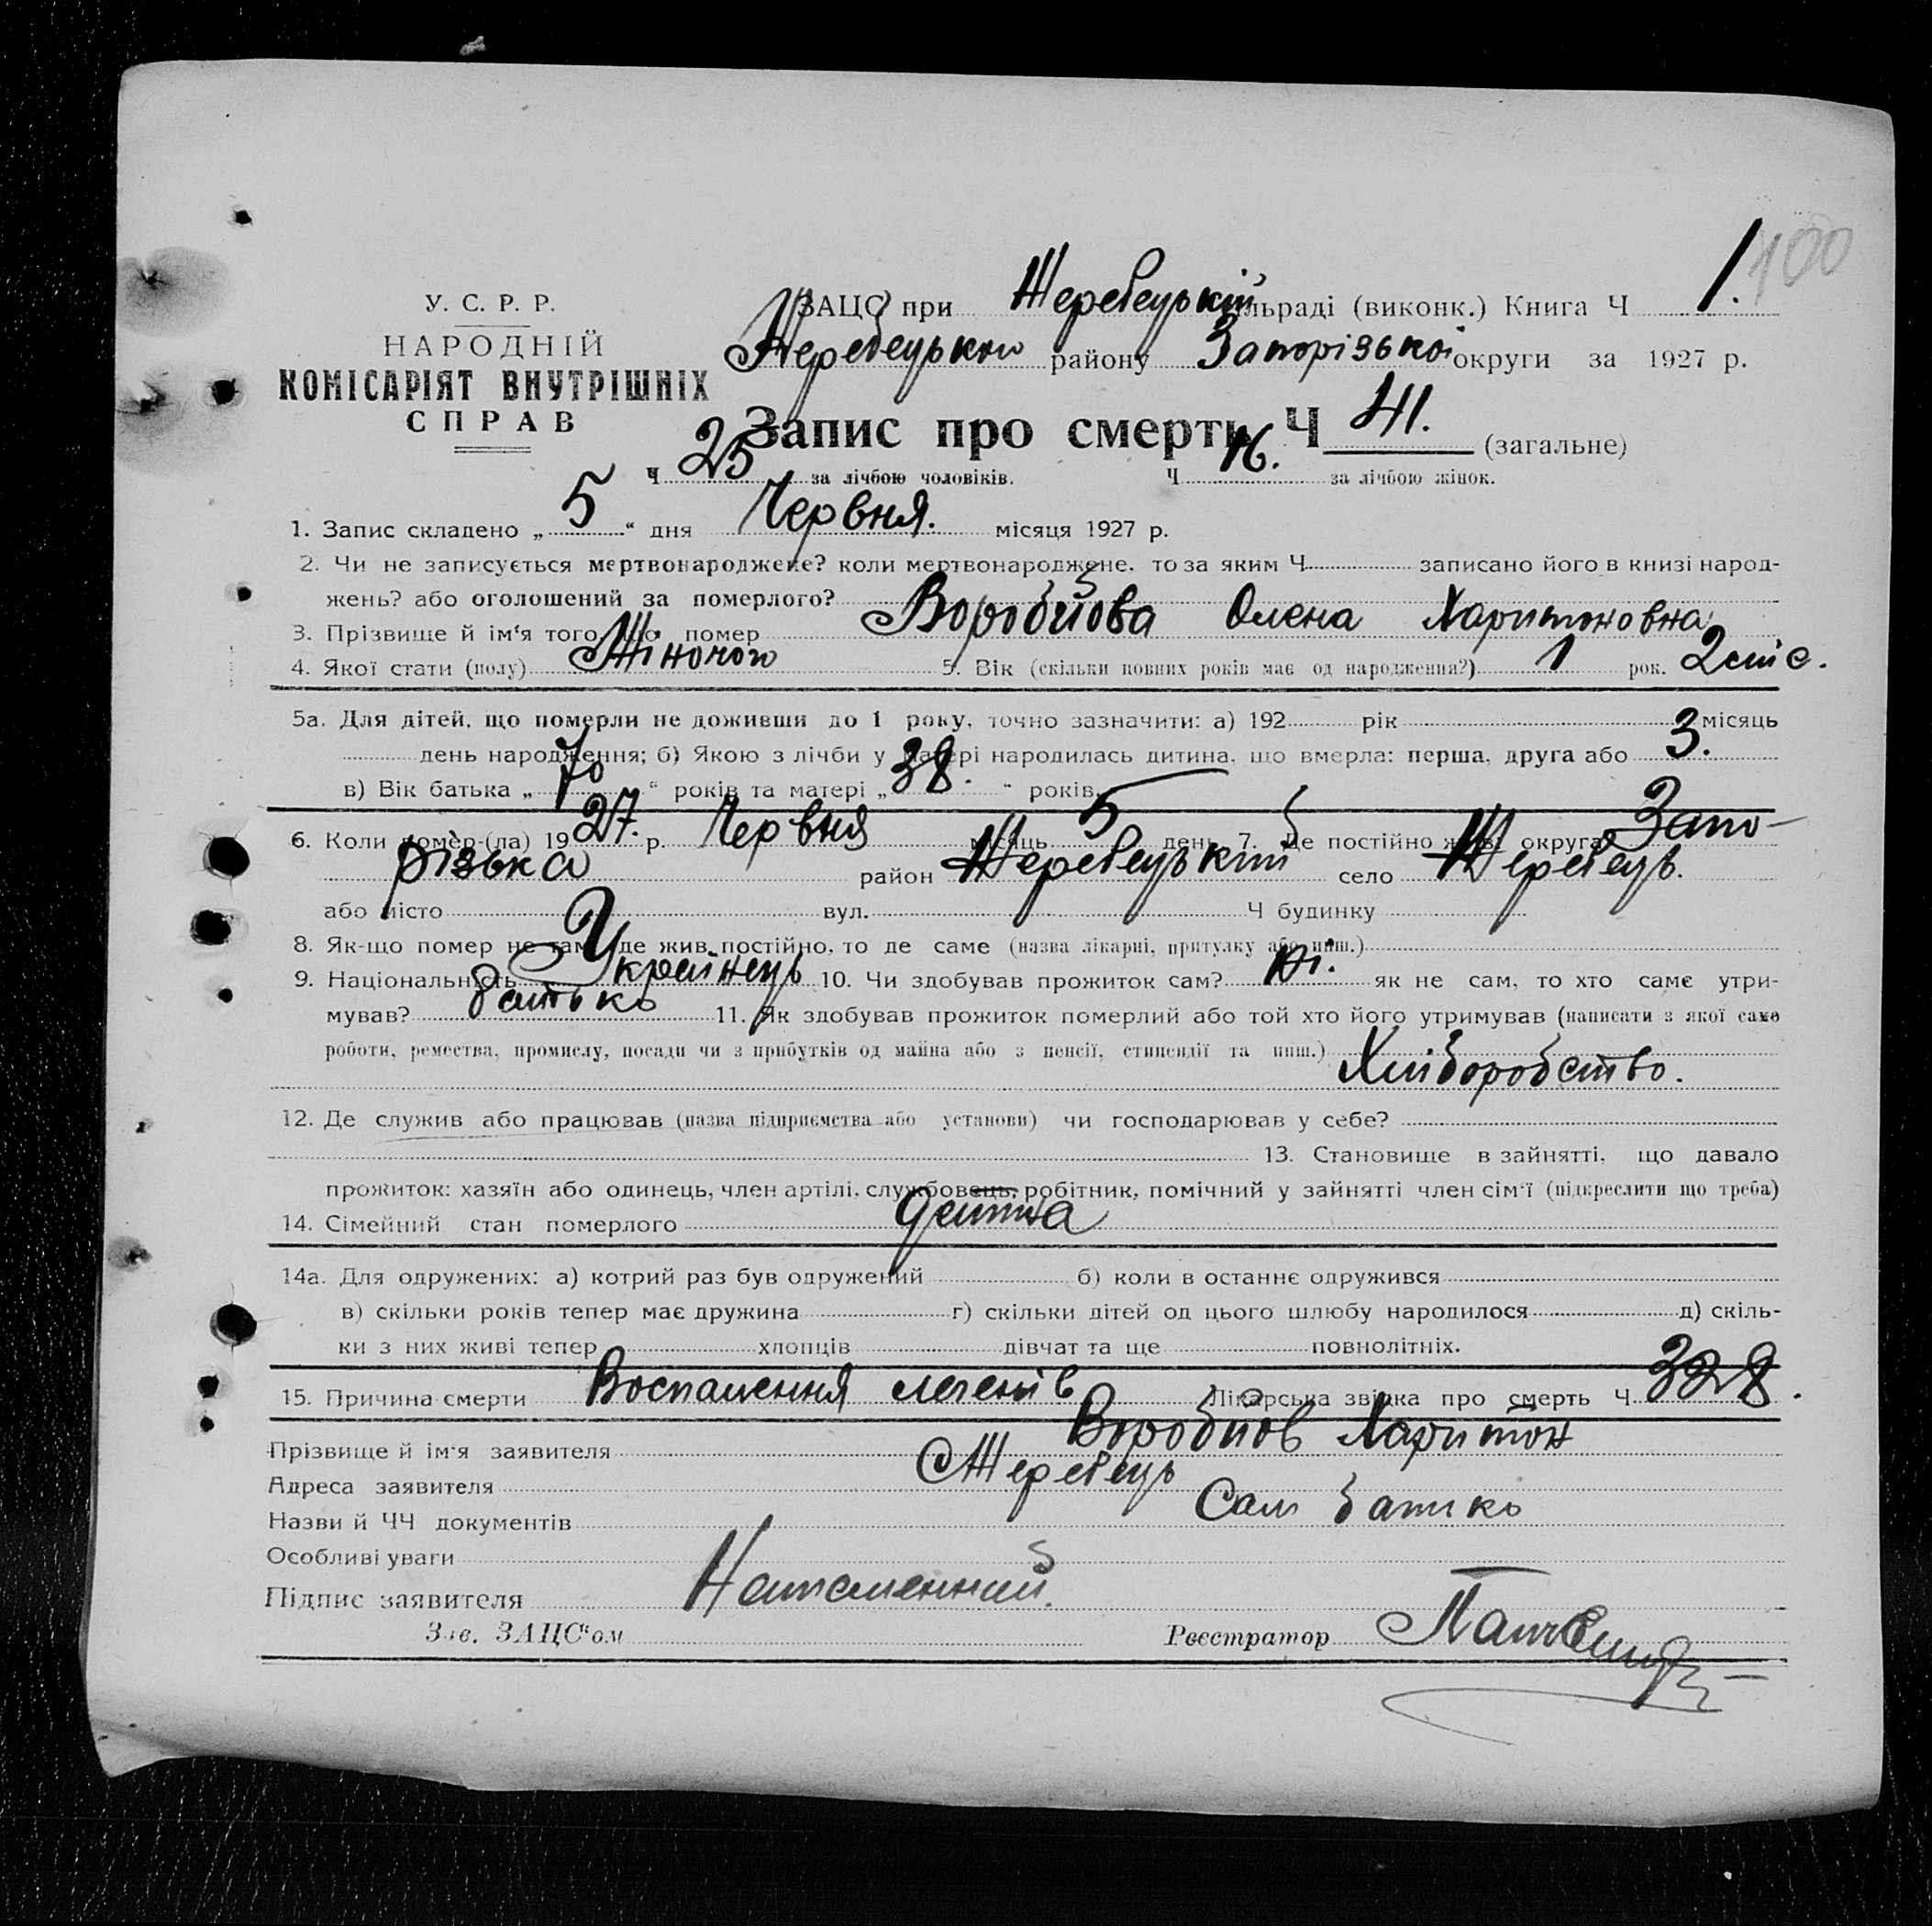 100
У. С. Р. Р.
НАРОДНІЙ
КОМІСАРІЯТ ВНУТРІШНІХ
СПРАВ
ЗАЦС при Жеребецькій сільраді (виконк.) Книга Ч 1.
Жеребецького району Запорізької округи за 1927 р.
Запис про смерть Ч 41. (загальне)
Ч 25 за лічбою чоловіків. Ч 16. за лічбою жінок.
1. Запис складено „ 5 “ дня Червня. місяця 1927 р.
2. Чи не записується мертвонароджене? коли мертвонароджене, то за яким Ч записано його в книзі народ-
жень? або оголошений за померлого?
3. Прізвище й ім'я того, що помер Воробйова Олена Харитоновна
4. Якої стати (полу) Жіночого 5. Вік (скільки повних років має од народження?) 1 рок. 2 міс.
5а. Для дітей, що померли не доживши до 1 року, точно зазначити: а) 192 рік місяць
день народження; б) Якою з лічби у матері народилась дитина, що вмерла: перша, друга або 3.
в) Вік батька „ 70 “ років та матері „ 38. “ років.
6. Коли помер-(ла) 1927. р. Червня місяць 5 день 7. Де постійно жив: округа Запо-
різька район Жеребецький село Жеребець.
або місто вул. Ч будинку
8. Як-що помер не там, де жив постійно, то де саме (назва лікарні, притулку або инш.)
9. Національність Українець 10. Чи здобував прожиток сам? Ні. як не сам, то хто саме утри-
мував? батько 11. Як здобував прожиток померлий або той хто його утримував (написати з якої само
роботи, ремества, промислу, посади чи з прибутків од майна або з пенсії, стипендії та инш.)
Хліборобство.
12. Де служив або працював (назва підприємства або установи) чи господарював у себе?
13. Становище в зайнятті, що давало
прожиток: хазяїн або одинець, член артілі, службовець, робітник, помічний у зайнятті член сім'ї (підкреслити що треба)
14. Сімейний стан померлого дитина
14а. Для одружених: а) котрий раз був одружений б) коли в останнє одружився
в) скільки років тепер має дружина г) скільки дітей од цього шлюбу народилося д) скіль-
ки з них живі тепер хлопців дівчат та ще повнолітніх.
15. Причина смерти Воспалення легенів Лікарська звідка про смерть Ч 328.
Прізвище й ім'я заявителя Воробйов Харитон
Адреса заявителя Жеребець
Назви й ЧЧ документів Сам батько
Особливі уваги
Підпис заявителя Неписменний.
Зав. ЗАЦС'ом Реєстратор